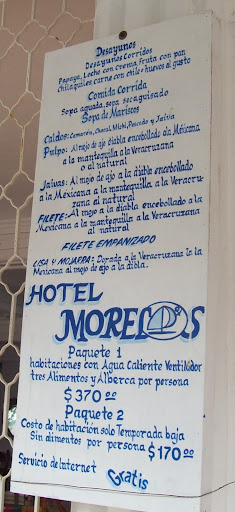 Desayunos
Desayunos Corridos
Papaya, Leche con Crema, Fruta con pan
chilaquiles carne con chile e huevos al gusto
Comida Corrida
Sopa aguada, sopa seca, guisado
Sopa de Mariscos
Caldos: Camarón, Chacal, Michi, Pescado y Jaiva
Pulpo: Al mojo de ajo diabla encebollado a la Mexicana
a la mantequilla a la Veracruzana
o al natural
Jaivas: Al mojo de ajo a la diabla encebollado
a la Mexicana a la mantequilla a la Veracru-
zana al natural
FILETE: Al mojo a la diabla encebollado a la
Mexicana a la mantequilla a la Veracruzana
al natural
FILETE EMPANIZADO
LISA Y MOJARRA: Dorado a la Veracruzana la la
Mexicana al mojo de ajo a la dibla.
HOTEL
MORELOS
Paquete 1
habitaciones con Agua Caliente Ventilador
tres Alimentos y Alberca por persona
$ 370.00
Paquete 2
Costo de habitación solo Temporada baja
Sin alimentos por persona $170.00
Servicio de Internet Gratis